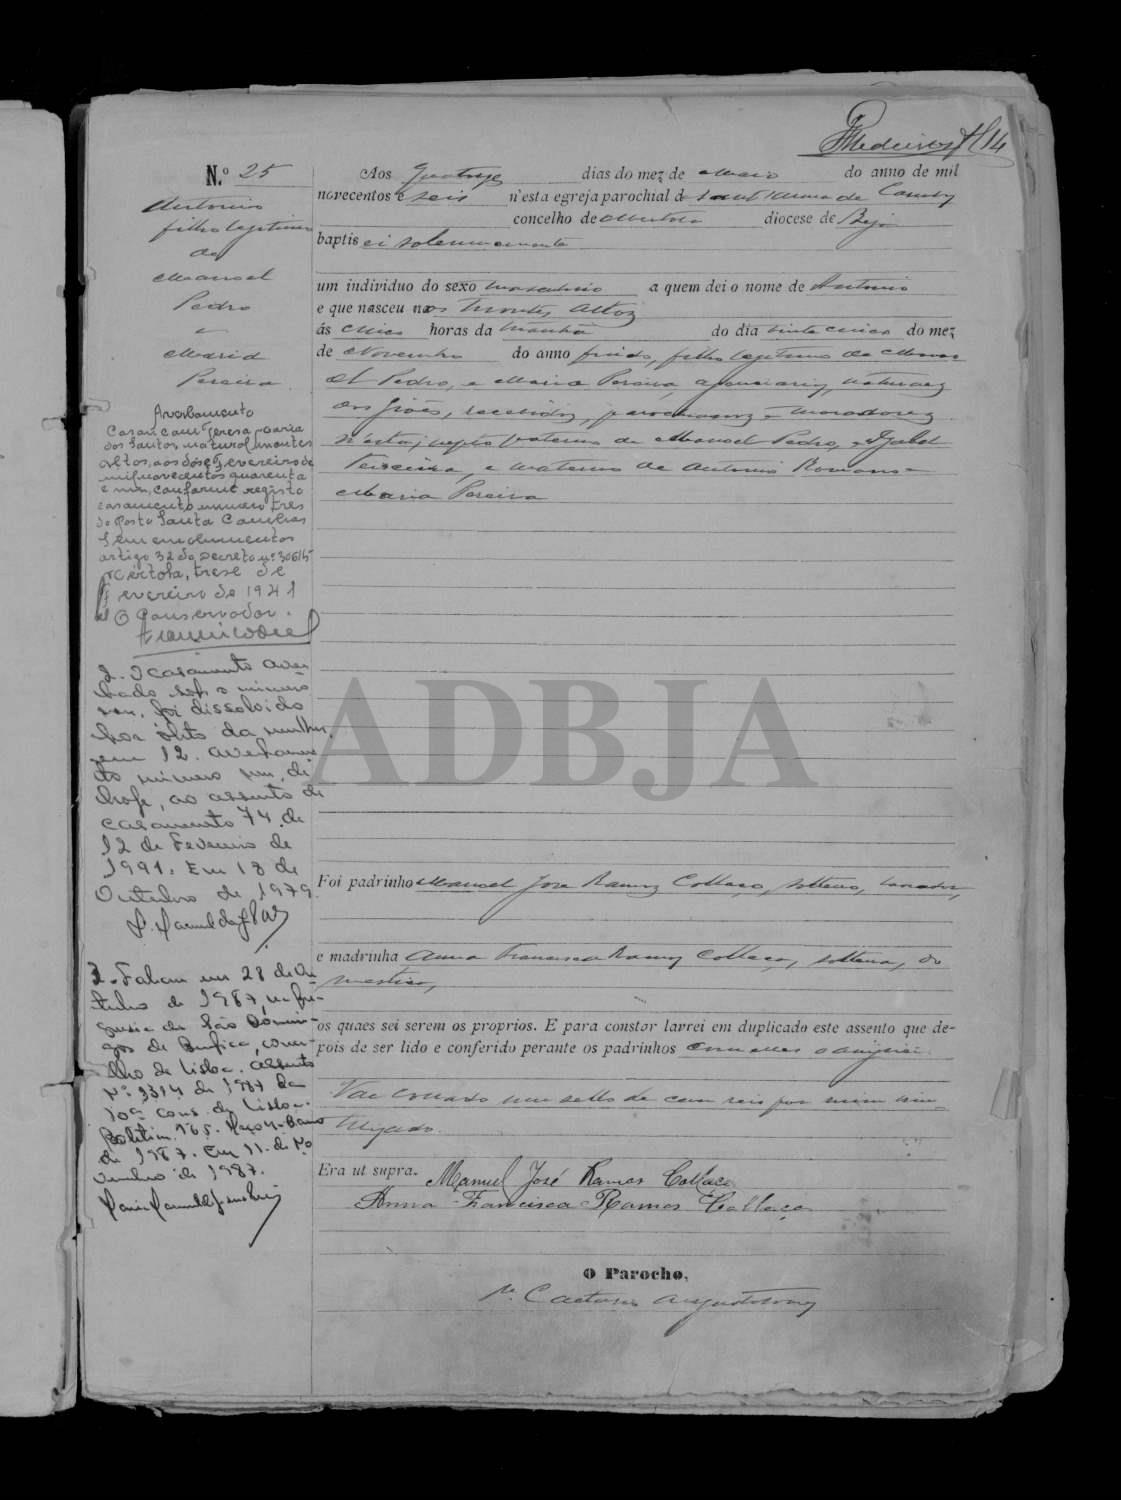 Medeiros 14
N.º 25
Antonio
filho legitimo
de
Manoel
Pedro
e
Maria
Pereira
Aos Quatorze dias do mez de Maio do anno de mil
novecentos e seis n'esta egreja parochial de Sant'Anna de Cambas
concelho de Mertola diocese de Beja
baptisei solemnemente
um individuo do sexo masculino a quem dei o nome de Antonio
e que nasceu nos Montes Altos
ás cinco horas da manhã do dia vinte cinco do mez
de Novembro do anno findo, filho legitimo de Mano-
el Pedro, e Maria Pereira, naturaes
dos Giões, recebidos, parochianos e moradores
n'esta; nepto paterno de Manoel Pedro, e
Teixeira, e materno de Antonio Romano e
Maria Pereira
Averbamento
Casou com Teresa Maria
dos Santos natural montes
altos, aos dose Fevereiro de
mil novecentos quarenta
e um, conforme registo
casamento numero tres
do Posto Santa Cambas
Sem emolumentos
artigo 32 do Decreto nº 30615
Mértola, trese de
Fevereiro de 1941
O Conservador
2. O casamento aver-
bado sob o número
um, foi dissolvido
por óbito da mulher,
em 12. Averbamen-
to número um, de
hoje, ao assento de
casamento 74 de
12 de Fevereiro de
1991. Em 18 de
Outubro de 1979
ADBJA
Foi padrinho Manoel Jose Ramos Collaço, solteiro, lavrador,
e madrinha Anna Francisca Ramos Collaço, solteira, do-
mestica,
os quaes sei serem os proprios. E para constar lavrei em duplicado este assento que de-
pois de ser lido e conferido perante os padrinhos com elles o assignei.
Vae collado um sello de cem reis por mim inu-
tilizado.
Era ut supra.
Manuel José Ramos Collaço
Anna Francisca Ramos Collaço
O Parocho,
P. Caetano Augusto
3. Faleceu em 28 de Ou-
tubro de 1987, na fre-
guesia de São Domin-
gos de Benfica, conce-
lho de Lisboa. Assento
Nº 3314 de 1987 da
10ª Cons. de Lisboa.
Boletim 165.
de 1987. Em 11 de No-
vembro de 1987.